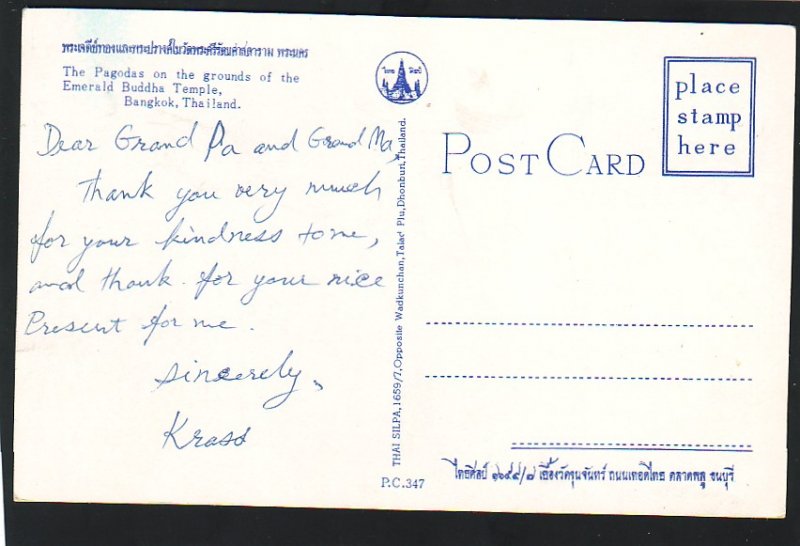 พระเจดีย์ทองและพระปรางค์ในวัดพระศรีรัตนศาสดาราม พระนคร
The Pagodas on the grounds of the
Emerald Buddha Temple,
Bangkok, Thailand.
Dear Grand Pa and Grand Ma,
Thank you very much
for your kindness to me,
and thank for your nice
Present for me.
Sincerely,
Krass
THAI SILPA, 1659/7, Opposite Wadkunchan, Talad Plu, Dhonburi, Thailand.
P.C.347
ไทย ศิลป์
POST CARD
place
stamp
here
ไทยศิลป์ ๑๖๕๙/๗ เยื้องวัดขุนจันทร์ ถนนเทอดไทย ตลาดพลู ธนบุรี